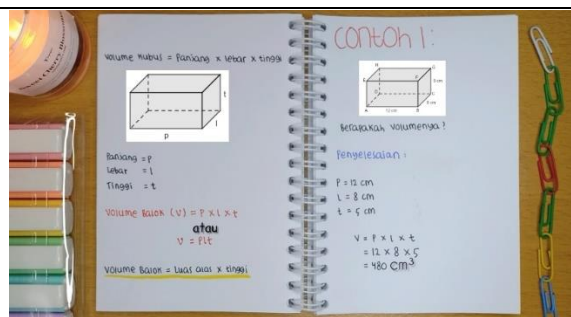 Volume Kubus = Panjang x lebar x tinggi
t
l
p
Panjang = P
Lebar = l
Tinggi = t
Volume Balok (V) = P x l x t
atau
V = Plt
Volume Balok = Luas alas x tinggi
Contoh 1:
12 cm
Berapakah volumenya?
Penyelesaian :
P = 12 cm
L = 8 cm
t = 5 cm
V = P x l x t
= 12 x 8 x 5
= 480 cm³